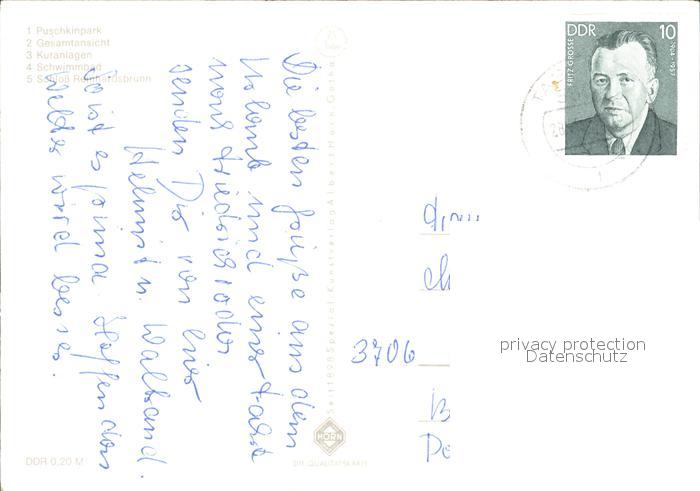 1 Puschkinpark
2 Gesamtansicht
3 Kuranlagen
4 Schwimmbad
5 Schloß Reinhardsbrunn
DDR 10
FRITZ GROSSE
1904-1957
Die besten Grüße aus dem
Urlaub und einer Fahrt
nach Friedrichroda
senden Dir von hier
Helmut u. Waltraud.
So ist es prima. Hoffen das
Wetter wird besser.
Seit 1898 Spezial Kunstverlag Albert Horn Gotha
HORN
3706
privacy protection
Datenschutz
DDR 0,20 M